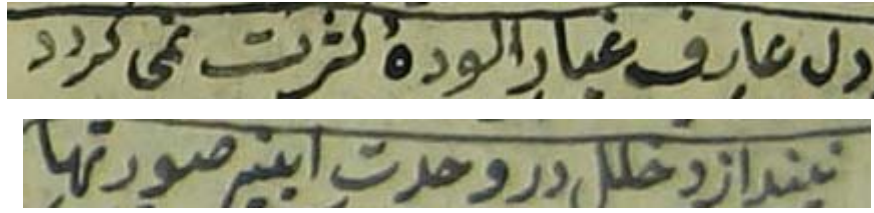 دل عارف غبار الودهٔ کثرت نمی کردد
نیندازد خلل در وحدت ابینه صورتها